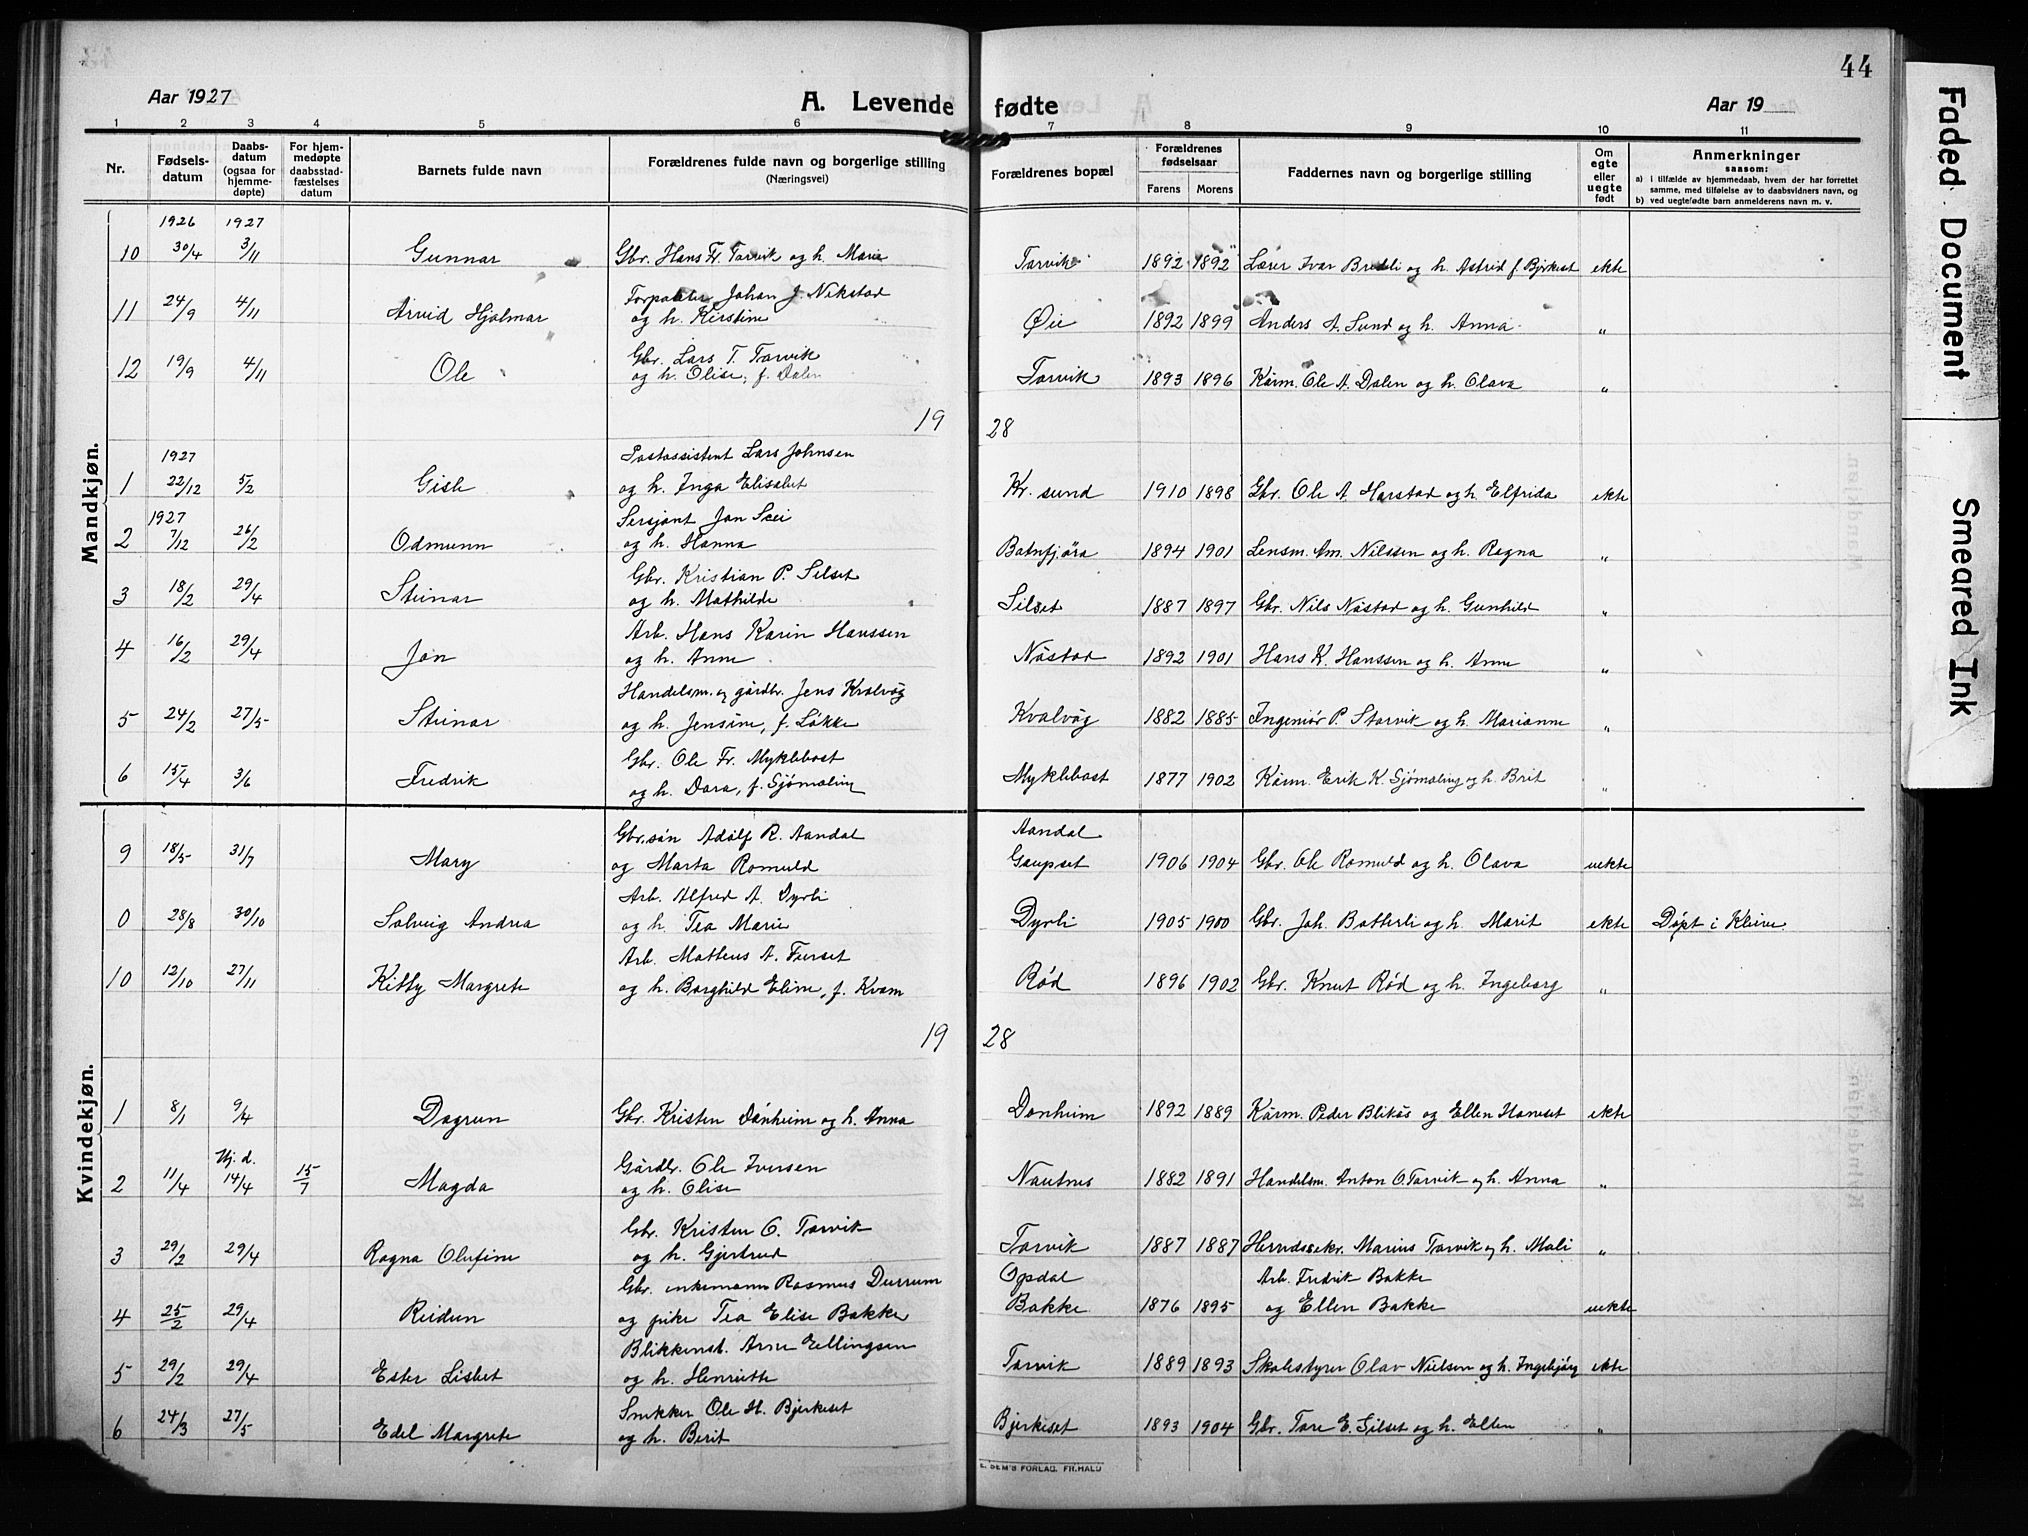 44
Aar 1927
A. Levende fødte
Aar 19
1 2 3 4 5 6 7 8 9 10 11
Nr.
Fødsels-
datum
Daabs-
datum
(ogsaa for
hjemme-
døpte)
For hjem-
medøpte
daabsstad-
fæstelses
datum
Barnets fulde navn
Forældrenes fulde navn og borgerlige stilling
(Næringsvei)
Forældrenes bopæl
Forældrenes
fødselsaar
Farens Morens
Faddernes navn og borgerlige stilling
Om
egte
eller
uegte
født
Anmerkninger
saasom:
a) i tilfælde av hjemmedaab, hvem der har forrettet
samme, med tilføielse av to daabsvidners navn, og
b) ved uegtefødte barn anmelderens navn m. v.
Mandkjøn.
1926 1927
10 30/4 3/11 Gunnar Gbr. Hans Fr. Torvik og h. Marie Torvik 1892 1892 Lærer Ivar Bredeli og h. Astrid f. Bjerkeset ekte
Johan J. Nekstad
11 24/9 4/11 Arvid Hjalmar og h. Kirstine Øie 1892 1899 Anders A. Sund og h. Anna "
Gbr. Lars T. Torvik
12 19/9 4/11 Ole og h. Olise, f. Dalen Torvik 1893 1896 Kårm. Ole A. Dalen og h. Olava "
19 28
1927 Postassistent Lars Johnsen
1 22/12 5/2 Gisle og h. Inga Elisabet Kr. sund 1910 1898 Gbr. Ole A. Harstad og h. Elfrida ekte
1927 Sersjant Jon Scei
2 7/12 26/2 Odmunn og h. Hanna Batnfjöra 1894 1901 Lensm. Am. Nilssen og h. Regna "
Gbr. Kristian P. Silset
3 18/2 29/4 Steinar og h. Mathilde Silset 1887 1897 Gbr. Nils Nåstad og h. Gunhild "
Arb. Hans Karin Hanssen
4 16/2 29/4 Jon og h. Anne Nåstad 1892 1901 Hans K. Hanssen og h. Anne "
Handelsm. og gårdbr. Jens Kvalvåg
5 24/2 27/5 Steinar og h. Jensine, f. Løkke Kvalvåg 1882 1885 Ingeniør P. Storvik og h. Marianne "
Gbr. Ole Fr. Myklebost
6 15/4 3/6 Fredrik og h. Dora, f. Sjömæling Myklebost 1877 1902 Kårm. Erik K. Sjömæling og h. Brit "
Kvindekjøn.
Gbr.søn Adolf R. Aandal Aandal
9 18/5 31/7 Mary og Marta Romuld Gaupset 1906 1904 Gbr. Ole Romuld og h. Olava uekte
Arb. Alfred A. Dyrli
0 28/8 30/10 Solveig Andrea og h. Tea Marie Dyrli 1905 1900 Gbr. Joh. Botterli og h. Marit ekte Døpt i Kleive.
Arb. Matteus A. Furset
10 12/10 27/11 Kitty Margrete og h. Borghild Eline, f. Kvam Rød 1896 1902 Gbr. Knut Rød og h. Ingeborg "
19 28
1 8/1 9/4 Dagrun Gbr. Kristen Dønheim og h. Anna Donheim 1892 1889 Kårm. Peder Blikås og Ellen Haneset ekte
Hj. d. Gårdbr. Ole Iversen
2 11/4 14/4 15/7 Magda og h. Olise Nautnes 1882 1891 Handelsm. Anton O. Torvik og h. Anna "
Gbr. Kristen O. Torvik
3 29/2 29/4 Ragna Olufine og h. Gjertrud Torvik 1887 1887 Herredssekr. Marius Torvik og h. Mali "
Gbr. enkemann Rasmus Durrum Opdal Arb. Fredrik Bakke
4 25/2 29/4 Reidun og pike Tea Elise Bakke Bakke 1876 1895 og Ellen Bakke uekte
Blikkensl. Arne Ellingsen
5 29/2 29/4 Ester Lisbet og h. Henriette Torvik 1889 1893 Skolestyrer Olav Nielsen og h. Ingebjørg ekte
Snekker Ole H. Bjerkeset
6 24/3 27/5 Edel Margrete og h. Berit Bjerkeset 1893 1904 Gbr. Tore E. Silset og h. Ellen "
E. SEM'S FORLAG, FR.HALD
Faded Document
Smeared Ink